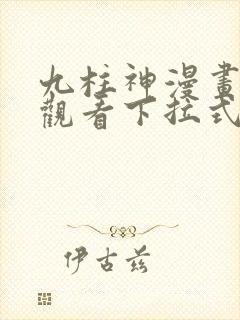 九柱神漫畫
觀看下拉式
伊古茲